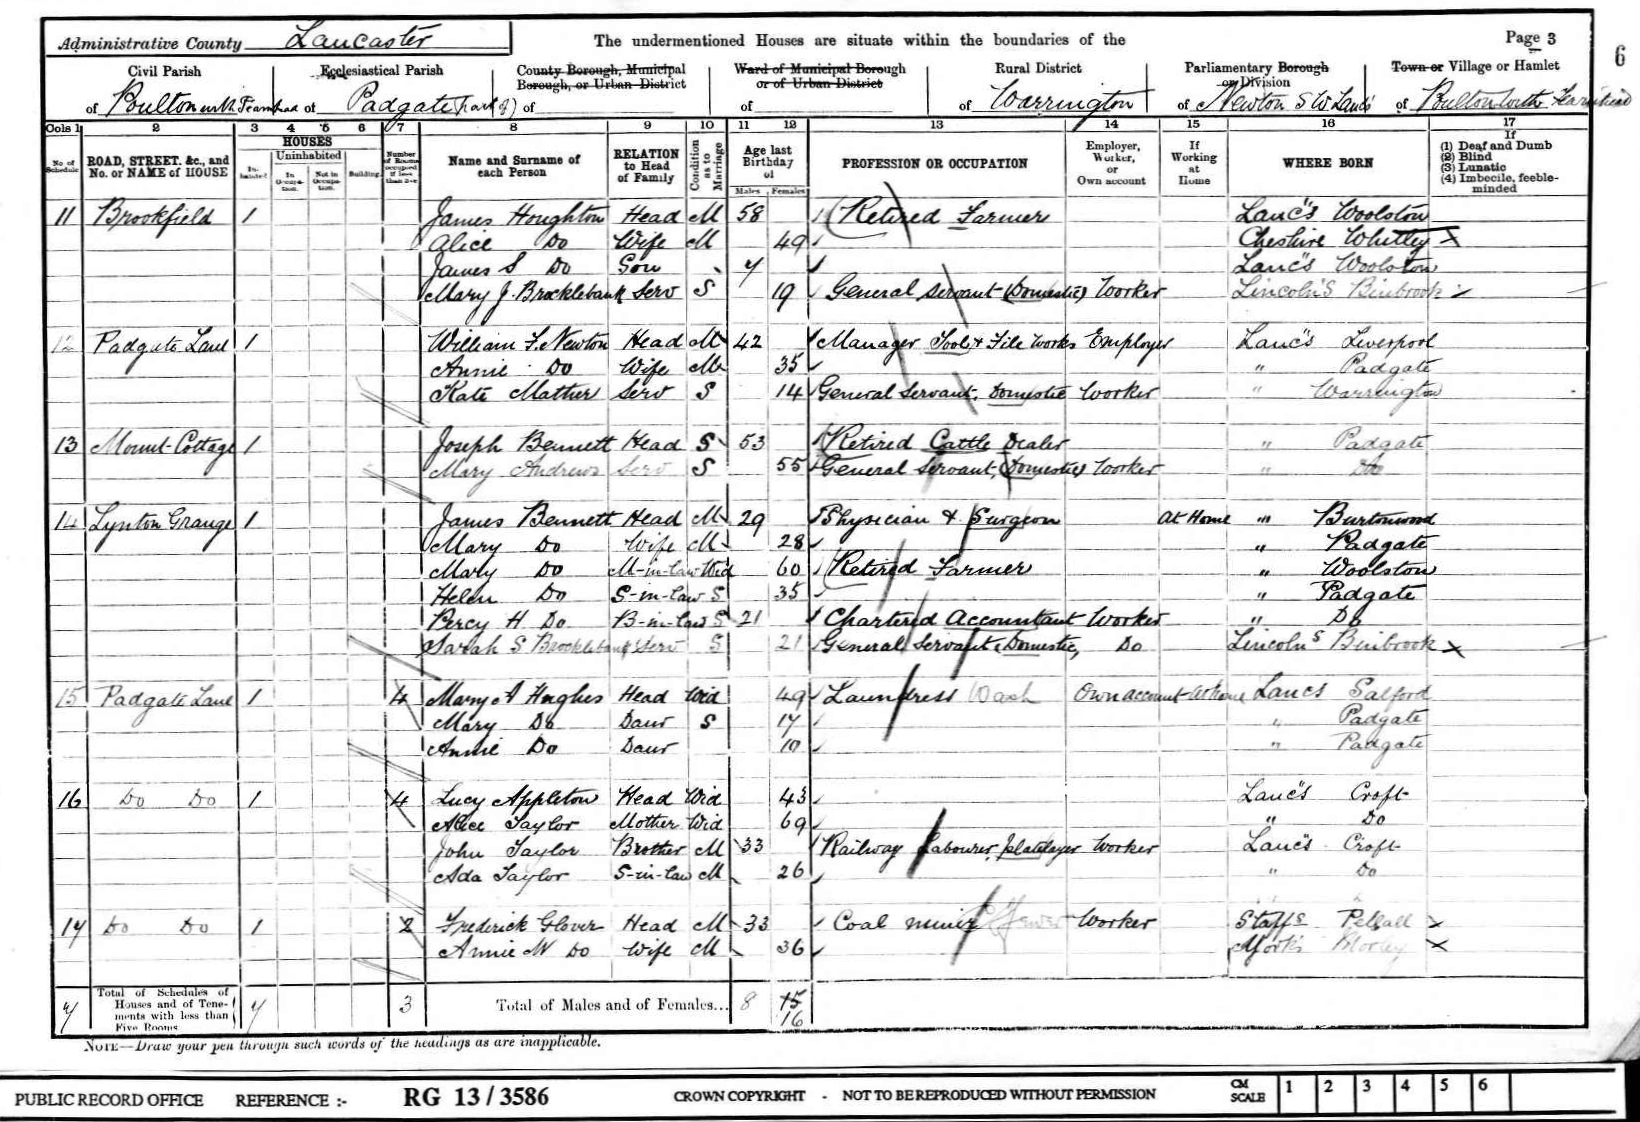 Administrative County Lancaster
The undermentioned Houses are situate within the boundaries of the
Page 3
6
Civil Parish
Ecclesiastical Parish
County Borough, Municipal Borough, or Urban District
Ward of Municipal Borough or of Urban District
Rural District
Parliamentary Borough or Division
Town or Village or Hamlet
of Poulton with Fearnhead of Padgate (part of) of of of Warrington of Newton S W Lancs of Poulton with Fearnhead
Cols 1 2 3 4 5 6 7 8 9 10 11 12 13 14 15 16 17
No of Schedule
ROAD, STREET. &c., and No. or NAME of HOUSE
HOUSES
Inhabited
Uninhabited
In Occupation.
Not in Occupation.
Building.
Number of Rooms occupied if less than five
Name and Surname of each Person
RELATION to Head of Family
Condition as to Marriage
Age last Birthday of
Males Females
PROFESSION OR OCCUPATION
Employer, Worker, or Own account
If Working at Home
WHERE BORN
If
(1) Deaf and Dumb
(2) Blind
(3) Lunatic
(4) Imbecile, feeble-minded
11 Brookfield 1 James Houghton Head M 58 Retired Farmer Lanc's Woolston
Alice Do Wife M 49 Cheshire Whitley
James S Do Son 7 Lanc's Woolston
Mary J. Brocklebank Serv S 19 General Servant (Domestic) Worker Lincoln's Binbrook
12 Padgate Lane 1 William F. Newton Head M 42 Manager Tool & File Works Employer Lanc's Liverpool
Annie Do Wife M 35 " Padgate
Kate Mather Serv S 14 General Servant, Domestic Worker " Warrington
13 Mount Cottage 1 Joseph Bennett Head S 53 Retired Cattle Dealer " Padgate
Mary Andrews Serv S 55 General Servant, (Domestic) Worker " Do
14 Lynton Grange 1 James Bennett Head M 29 Physician & Surgeon At Home " Burtonwood
Mary Do Wife M 28 " Padgate
Mary Do M-in-law Wid 60 Retired Farmer " Woolston
Helen Do S-in-law S 35 " Padgate
Percy H Do B-in-law S 21 Chartered Accountant Worker " Do
Sarah S Brocklebank Serv S 21 General Servant, Domestic, Do Lincoln's Binbrook
15 Padgate Lane 1 4 Mary A Hughes Head Wid 49 Laundress Wash Own account At Home Lancs Salford
Mary Do Daur S 17 " Padgate
Annie Do Daur 10 " Padgate
16 Do Do 1 4 Lucy Appleton Head Wid 43 Lanc's Croft
Alice Taylor Mother Wid 69 " Do
John Taylor Brother M 33 Railway Labourer, platelayer Worker Lanc's Croft
Ada Taylor S-in-law M 26 " Do
17 Do Do 1 2 Frederick Glover Head M 33 Coal miner Hewer Worker Staffs Pelsall
Annie M Do Wife M 36 Yorks Morley
7 Total of Schedules of Houses and of Tenements with less than Five Rooms 7 3 Total of Males and of Females... 8 15 16
NOTE—Draw your pen through such words of the headings as are inapplicable.
PUBLIC RECORD OFFICE REFERENCE :- RG 13 / 3586 CROWN COPYRIGHT - NOT TO BE REPRODUCED WITHOUT PERMISSION CM SCALE 1 2 3 4 5 6